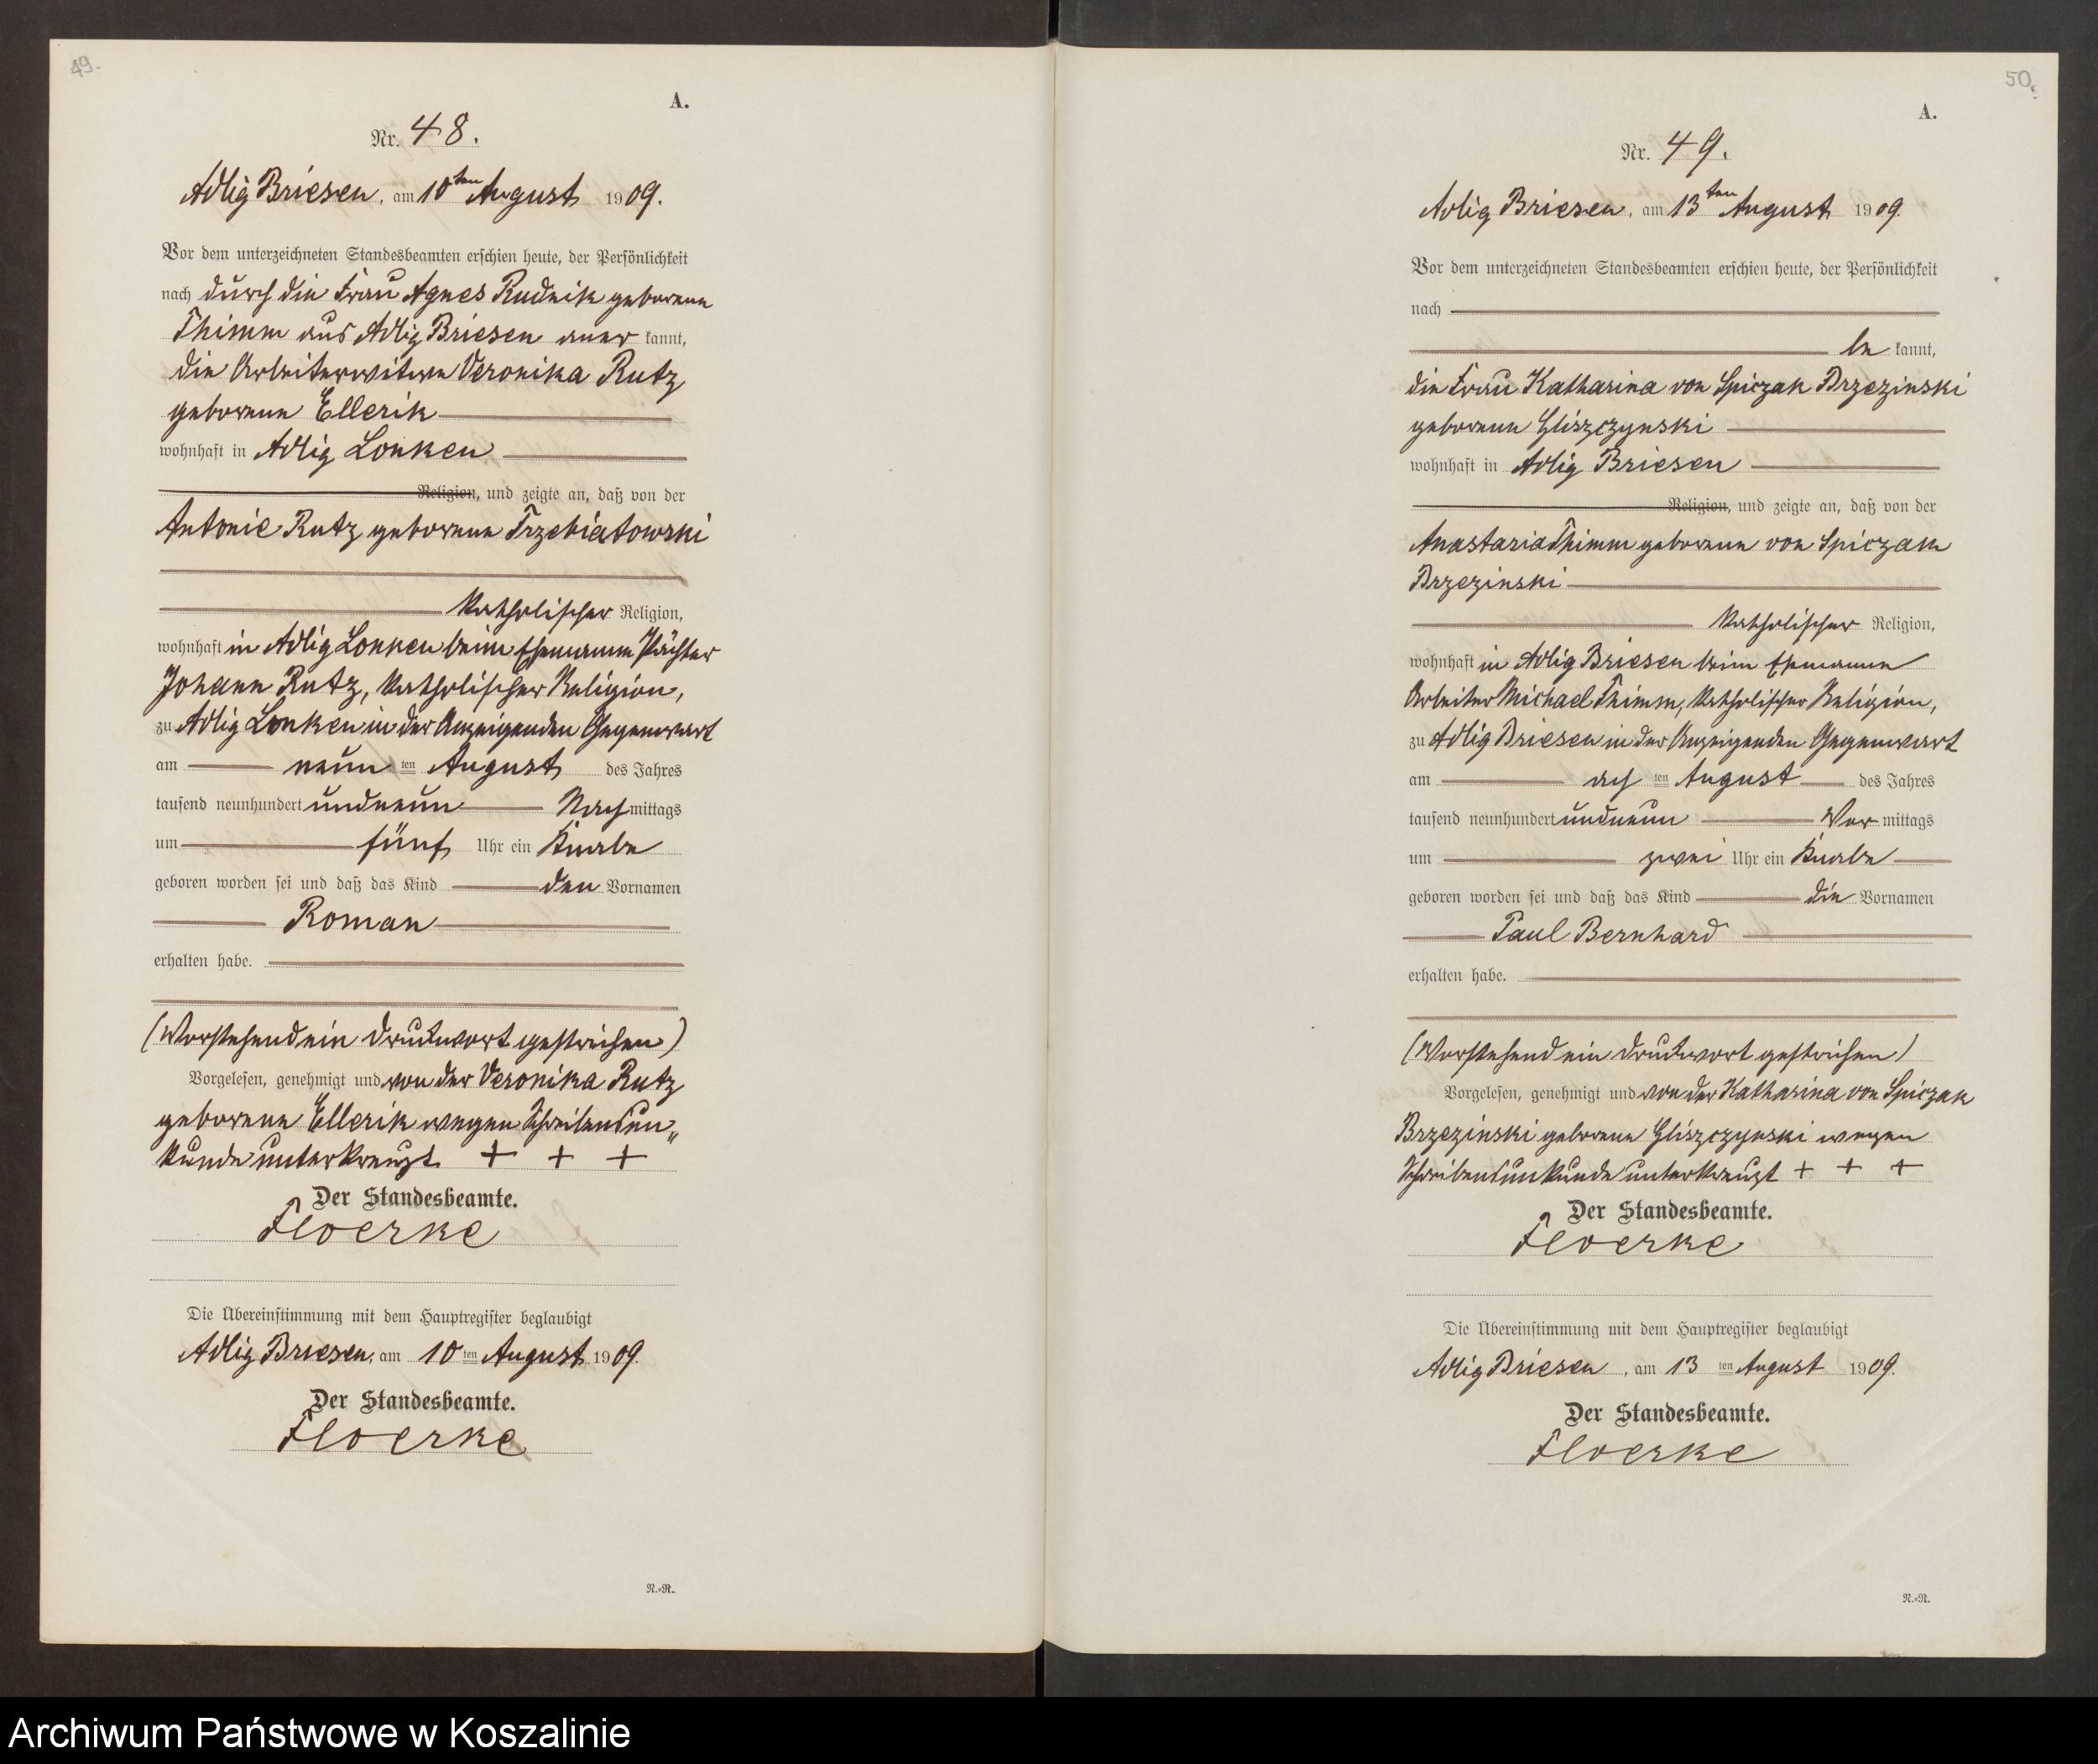 49.
A.
Nr. 48.
Adlig Briesen, am 10ten August 1909.
Vor dem unterzeichneten Standesbeamten erschien heute, der Persönlichkeit
nach durch die Frau Agnes Rudnik geborene
Thimm aus Adlig Briesen aner kannt,
die Arbeiterwitwe Veronika Rutz
geborene Ellerik
wohnhaft in Adlig Lonken
Religion, und zeigte an, daß von der
Antonie Rutz geborene Trzebiatowski
katholischer Religion,
wohnhaft in Adlig Lonken beim Ehemanne Pächter
Johann Rutz, katholischer Religion,
zu Adlig Lonken in der Anzeigenden Gegenwart
am neun ten August des Jahres
tausend neunhundert undneun Nach mittags
um fünf Uhr ein Knabe
geboren worden sei und daß das Kind den Vornamen
Roman
erhalten habe.
(Vorstehend ein Druckwort gestrichen)
Vorgelesen, genehmigt und von der Veronika Rutz
geborene Ellerik wegen Schreibensun„
kunde unterkreuzt + + +
Der Standesbeamte.
Floerke
Die Übereinstimmung mit dem Hauptregister beglaubigt
Adlig Briesen, am 10 ten August 1909.
Der Standesbeamte.
Floerke
N.=R.
50.
A.
Nr. 49.
Adlig Briesen, am 13ten August 1909.
Vor dem unterzeichneten Standesbeamten erschien heute, der Persönlichkeit
nach
be kannt,
die Frau Katharina von Spiczak Brzezinski
geborene Gliszczynski
wohnhaft in Adlig Briesen
Religion, und zeigte an, daß von der
Anastasia Thimm geborene von Spiczak
Brzezinski
katholischer Religion,
wohnhaft in Adlig Briesen beim Ehemanne
Arbeiter Michael Thimm, katholischer Religion,
zu Adlig Briesen in der Anzeigenden Gegenwart
am ach ten August des Jahres
tausend neunhundert undneun Vor mittags
um zwei Uhr ein Knabe
geboren worden sei und daß das Kind die Vornamen
Paul Bernhard
erhalten habe.
(Vorstehend ein Druckwort gestrichen)
Vorgelesen, genehmigt und von der Katharina von Spiczak
Brzezinski geborene Gliszczynski wegen
Schreibensunkunde unterkreuzt + + +
Der Standesbeamte.
Floerke
Die Übereinstimmung mit dem Hauptregister beglaubigt
Adlig Briesen, am 13 ten August 1909.
Der Standesbeamte.
Floerke
N.=R.
Archiwum Państwowe w Koszalinie